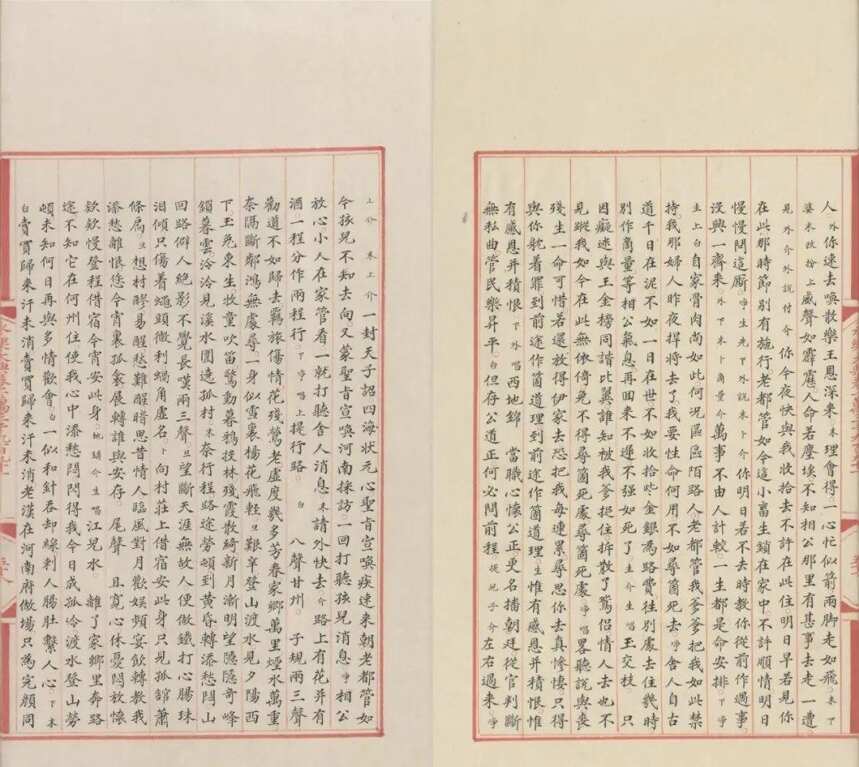 人外你速去喚散樂王恩深來末理會得一心忙似箭兩脚走如飛末下
婆末改扮上威聲如霹靂人命若塵埃不知相公那里有甚事去走一遭
見外介外說付介你今夜快與我收拾去不許在此住明日早若見你
在此那時節別有施行老都管如今這小畜生鎖在家中不許順情明日
慢慢問這厮爭生先下外說末卜介你明日若不去時教你從前作過事
没興一齊來外下末卜商量介萬事不由人計較一生都是命安排下爭
生上白自家骨肉尚如此何況區區陌路人老都管我爹爹把我如此禁
持我那婦人昨夜捍將去了我要性命何用不如尋箇死去爭舍人自古
道千日在泥不如一日在世不如收拾些金銀為路費往別處去住幾時
別作商量等相公氣息再回來不運不强如死了生介生唱玉交枝 只
因癡迷與王金榜同諧比翼誰知被我爹捉住拆散了鴛侶情人去也不
見蹤我如今在此無依倚免不得尋箇死處尋箇死處爭畧聽說與喪
殘生一命可惜若還放得伊家去恐把我每連累尋思你去真慘悽只得
與你躭着罪到前途作箇道理到前途作箇道理生惟有感恩并積恨惟
有感恩并積恨下外唱西地錦 當職心懷公正更名播朝廷從官判斷
無私曲管民樂昇平白但存公道正何必問前程提兒子介左右過來爭
上介末上介一封天子詔四海狀元心聖旨宣喚疾速來朝老都管如
今孩兒不知去向又蒙聖旨宣喚河南採訪一回打聽孩兒消息爭相公
放心小人在家管看一就打聽舍人消息末請外快去介路上有花并有
酒一程分作兩程行下爭唱上提行路白八聲甘州 子規兩三聲
勸道不如歸去羈旅傷情花殘鶯老虛度幾多芳春家鄉萬里煙水萬重
奈隔斷鄰鴻無處尋一身似雪裏楊花飛輕旦艱辛登山渡水見夕陽西
下玉兔東生牧童吹笛驚動暮鴉投林殘霞散綺新月漸明望隱隱奇峰
鎖暮雲泠泠見溪水圍遶孤村末奈行程路途勞頓到黄昏轉添愁悶山
回路僻人絶影不覺長嘆兩三聲旦望斷天涯無故人便做鐵打心腸珠
泪傾只傷着蠅頭微利蝸角虛名卜向村莊上借宿安此身只見孤館蕭
條扃旦想村醪易醒愁難醒暗思昔情人臨風對月歡娱頻宴飲轉教我
添愁離恨您今宵裏孤衾展轉誰與安存 尾聲 且寬心休憂悶放懷
欵欵慢登程借宿今宵安此身虔婦介生唱江兒水 離了家鄉里奔路
途不知它在何州住使我心中添愁悶悶得我今日成孤伶渡水登山勞
頓未知何日再與多情歡會白一似和針吞却線刺人腸肚繫人心下末
白賣賣歸來汗未消賣賣歸來汗未消老漢在河南府做場只為完顔同